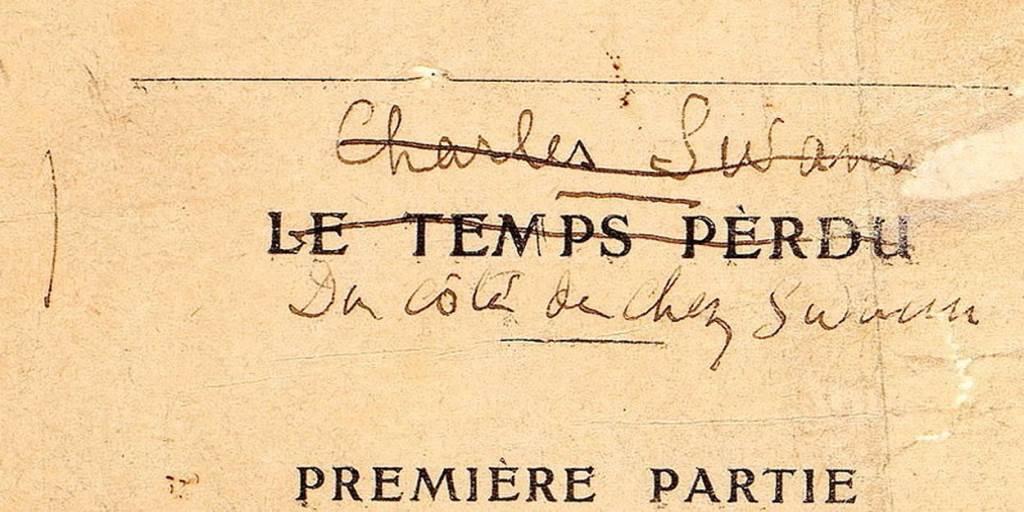 Charles Swann
LE TEMPS PÈRDU
Du côté de chez Swann
PREMIÈRE PARTIE